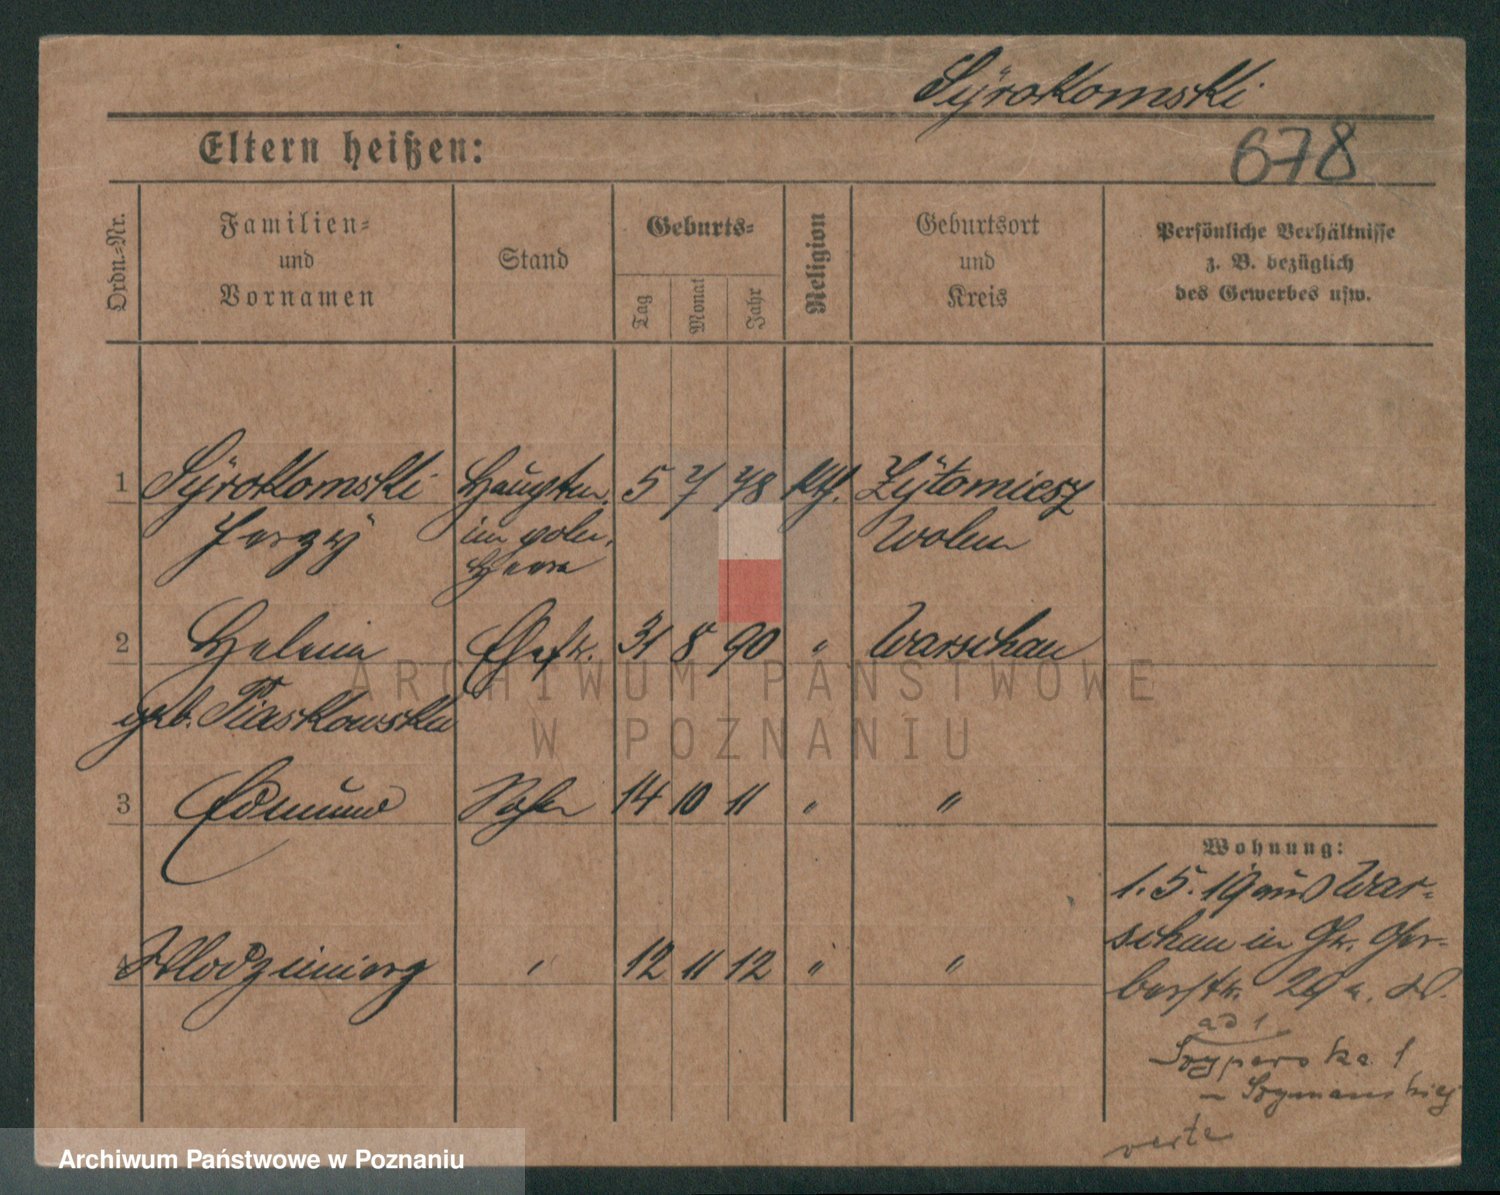 Syrokomski
678
Eltern heißen:
Ordn.-Nr.
Familien-
und
Vornamen
Stand
Geburts-
Tag
Monat
Jahr
Religion
Geburtsort
und
Kreis
Persönliche Verhältnisse
z. B. bezüglich
des Gewerbes usw.
1 Syrokomski Hauptm. 5 7 78 kth. Zytomiesz
Jerzy im poln. Wolen
Heere
2 Helena Ehefr. 31 8 90 " Warschau
geb. Piaskowska
3 Edmund Sohn 14 10 11 " "
4 Wlodzimierz " 12 11 12 " "
Wohnung:
1.5.19 aus War-
schau in Gr. Ger-
berstr. 29
ad 1
1
verte
ARCHIWUM PAŃSTWOWE
W POZNANIU
Archiwum Państwowe w Poznaniu